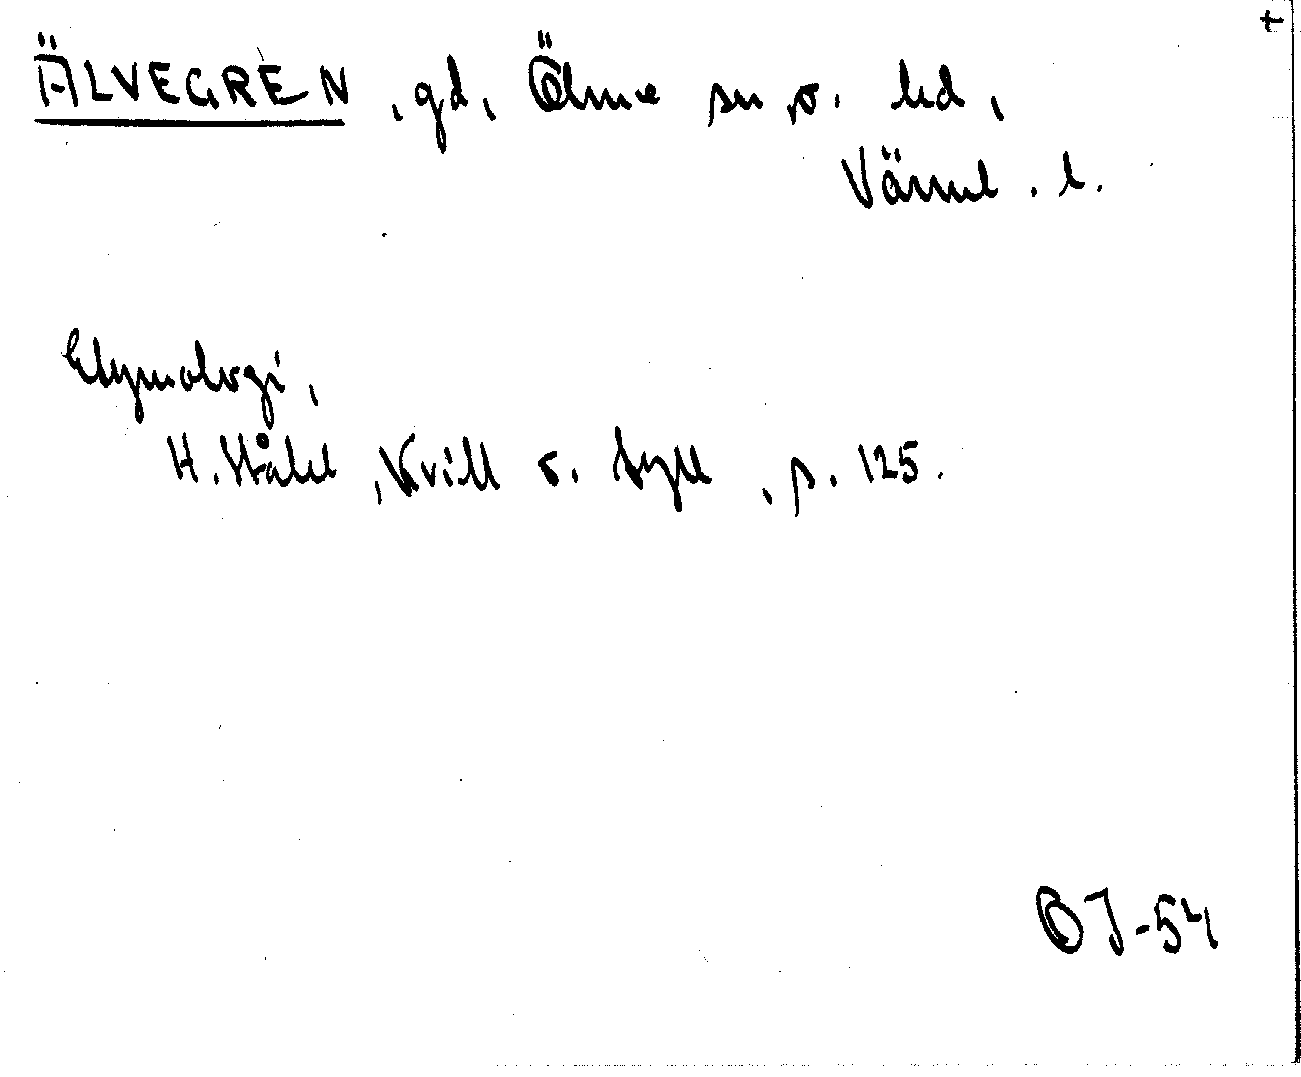 ÄLVEGREN, gd, Ölme sn o. hd,
Värml. l.
Etymologi,
H. Ståhl, Kvill o. tyll, p. 125.
OJ-54